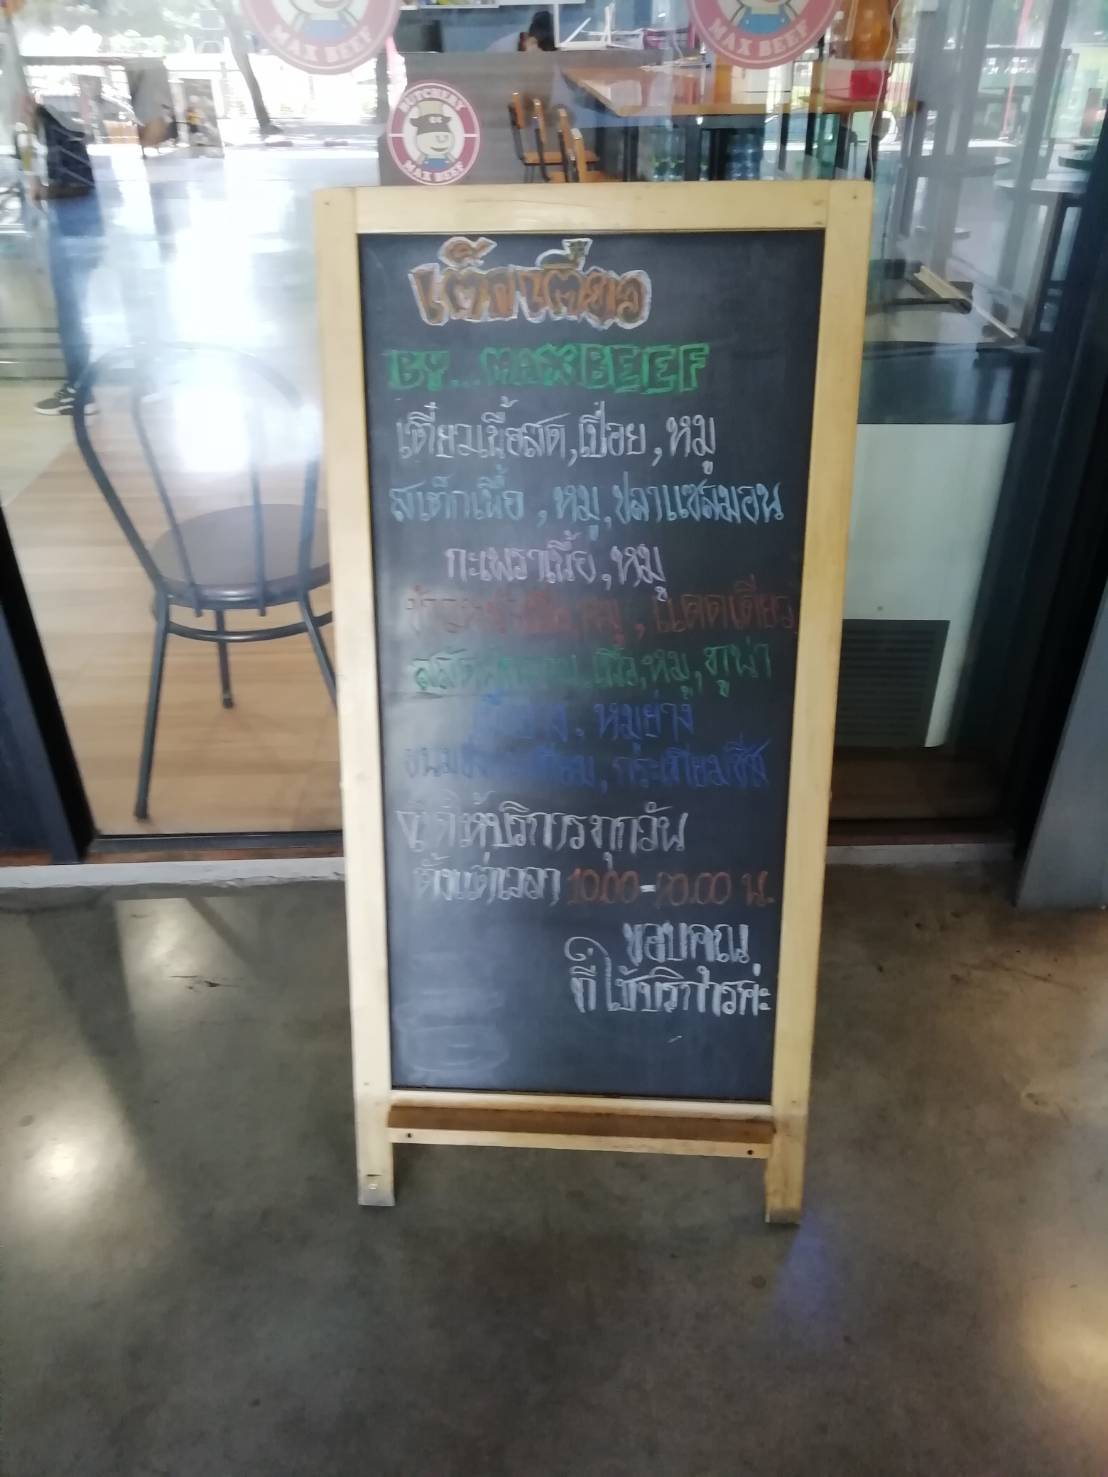 MAX BEEF
MAX BEEF
BUTCHERY
MAX BEEF
เต็กเตี๋ยว
BY... MAXBEEF
เตี๋ยวเนื้อสด, เปื่อย, หมู
สเต็กเนื้อ, หมู, ปลาแซลมอน
กะเพราเนื้อ, หมู
หมู, แดดเดียว
เนื้อ, หมู, ทูน่า
หมูย่าง
กระเทียมชีส
ให้บริการทุกวัน
ตั้งแต่เวลา 10.00-20.00 น.
ขอบคุณ
ที่ใช้บริการค่ะ